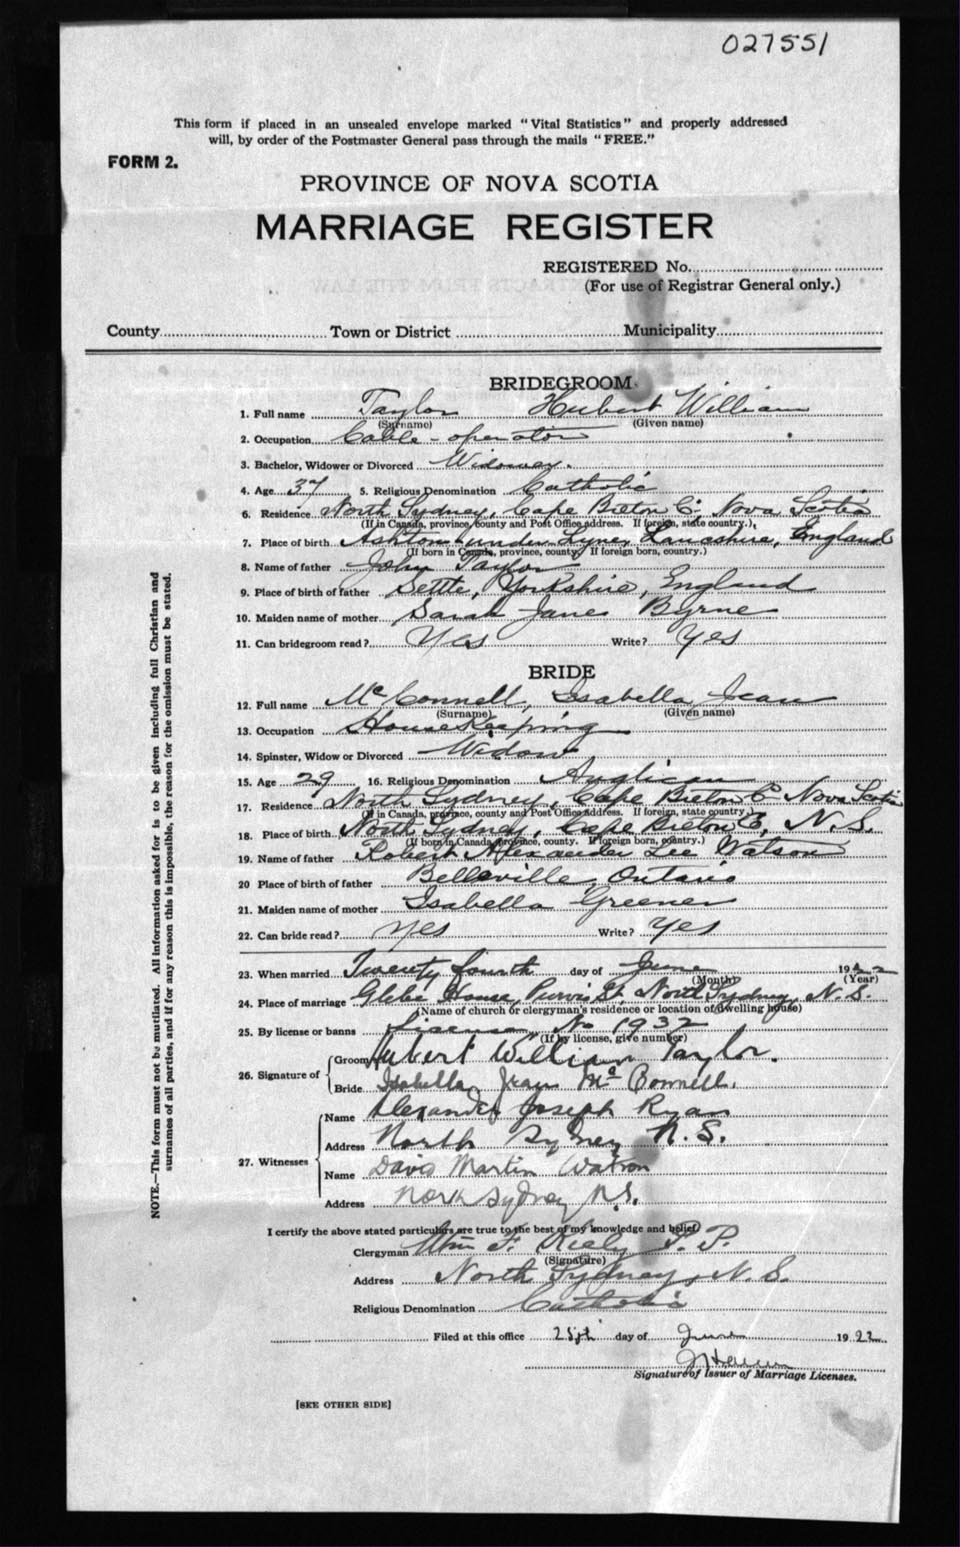 027551
This form if placed in an unsealed envelope marked "Vital Statistics" and properly addressed
will, by order of the Postmaster General pass through the mails "FREE."
FORM 2.
PROVINCE OF NOVA SCOTIA
MARRIAGE REGISTER
REGISTERED No.
(For use of Registrar General only.)
County Town or District Municipality
BRIDEGROOM.
1. Full name Taylor Hubert William
(Surname) (Given name)
2. Occupation Cable-operator
3. Bachelor, Widower or Divorced Widower.
4. Age 37 5. Religious Denomination Catholic
6. Residence North Sydney, Cape Breton C. Nova Scotia
(If in Canada, province, county and Post Office address. If foreign, state country.)
7. Place of birth Ashton under Lyne, Lancshire, England
(If born in Canada, province, county. If foreign born, country.)
8. Name of father John Taylor
9. Place of birth of father Settle, Yorkshire, England
10. Maiden name of mother Sarah Jane Byrne
11. Can bridegroom read? Yes Write? Yes
BRIDE
12. Full name McConnell, Isabella Jean
(Surname) (Given name)
13. Occupation House Keeping
14. Spinster, Widow or Divorced Widow
15. Age 29 16. Religious Denomination Anglican
17. Residence North Sydney, Cape Breton C. Nova Scotia
(If in Canada, province, county and Post Office address. If foreign, state country.)
18. Place of birth North Sydney, Cape Breton C, N.S.
(If born in Canada, province, county. If foreign born, country.)
19. Name of father Robert Alexander Lee Watson
20 Place of birth of father Belleville, Ontario
21. Maiden name of mother Isabella Greener
22. Can bride read? Yes Write? Yes
23. When married Twenty fourth day of June 1922
(Month) (Year)
24. Place of marriage Glebe House, Purvis St, North Sydney, N.S.
(Name of church or clergyman's residence or location of dwelling house)
25. By license or banns License No 1932
(If by license, give number)
26. Signature of
Groom Hubert William Taylor.
Bride Isabella Jean McConnell.
27. Witnesses
Name Alexander Joseph Ryan
Address North Sydney N.S.
Name David Martin Watson
Address North Sydney N.S.
I certify the above stated particulars are true to the best of my knowledge and belief
Clergyman Wm F. Kiely P.P.
(Signature)
Address North Sydney, N.S.
Religious Denomination Catholic
Filed at this office day of June 1922
Signature of Issuer of Marriage Licenses.
[SEE OTHER SIDE]
NOTE.—This form must not be mutilated. All information asked for is to be given including full Christian and
surnames of all parties, and if for any reason this is impossible, the reason for the omission must be stated.